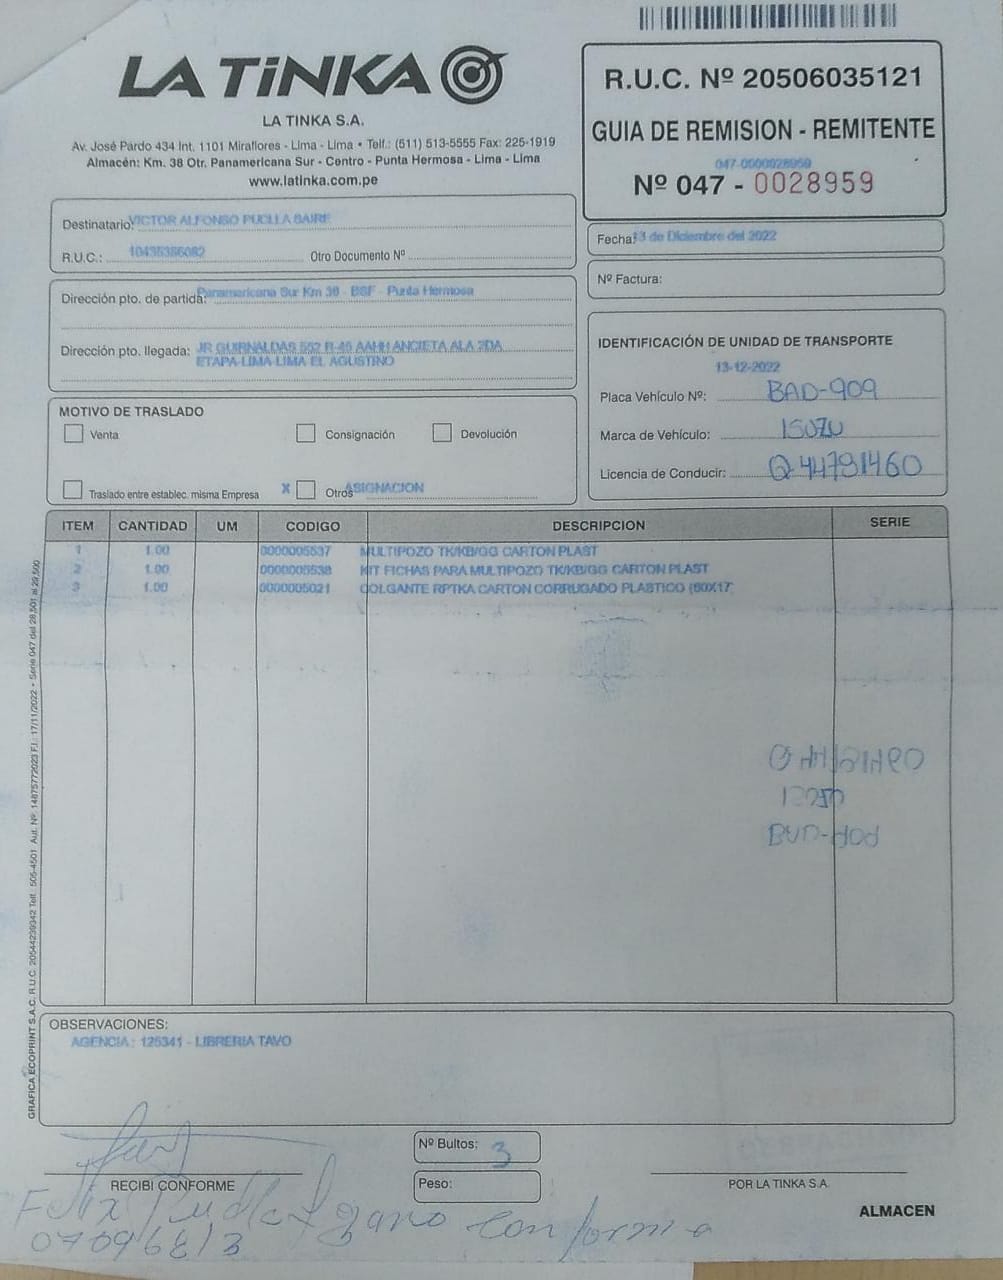 LA TiNKA
LA TINKA S.A.
Av. José Pardo 434 Int. 1101 Miraflores - Lima - Lima • Telf.: (511) 513-5555 Fax: 225-1919
Almacén: Km. 38 Otr. Panamericana Sur - Centro - Punta Hermosa - Lima - Lima
www.latinka.com.pe
R.U.C. Nº 20506035121
GUIA DE REMISION - REMITENTE
047-0000028959
Nº 047 - 0028959
Destinatario: VICTOR ALFONSO PUCLLA
R.U.C.: Otro Documento Nº
Fecha: 13 de Diciembre del 2022
Nº Factura:
Dirección pto. de partida: Panamericana Sur Km 38 - BSF - Punta Hermosa
Dirección pto. llegada: JR GUIRNALDAS 552 R-45 AAHH ANCIETA ALA 2DA
ETAPA-LIMA-LIMA EL AGUSTINO
IDENTIFICACIÓN DE UNIDAD DE TRANSPORTE
13-12-2022
Placa Vehículo Nº: BAD-909
Marca de Vehículo: ISUZU
Licencia de Conducir: Q44791460
MOTIVO DE TRASLADO
Venta Consignación Devolución
Traslado entre establec. misma Empresa X Otros ASIGNACION
ITEM CANTIDAD UM CODIGO DESCRIPCION SERIE
1 1.00 0000005537 MULTIPOZO TK/KB/GG CARTON PLAST
2 1.00 0000005538 KIT FICHAS PARA MULTIPOZO TK/KB/GG CARTON PLAST
3 1.00 0000005021 COLGANTE RPTKA CARTON CORRUGADO PLASTICO (60X17
GRAFICA ECOPRINT S.A.C. R.U.C. 20544239342 Telf.: 505-4501 Aut. Nº. 14875772023 F.I.: 17/11/2022 - Serie 047 del 28,501 al 29,500
OBSERVACIONES:
AGENCIA : 125341 - LIBRERIA TAVO
Nº Bultos: 3
Peso:
RECIBI CONFORME
POR LA TINKA S.A.
ALMACEN
Felix conforme
07096813